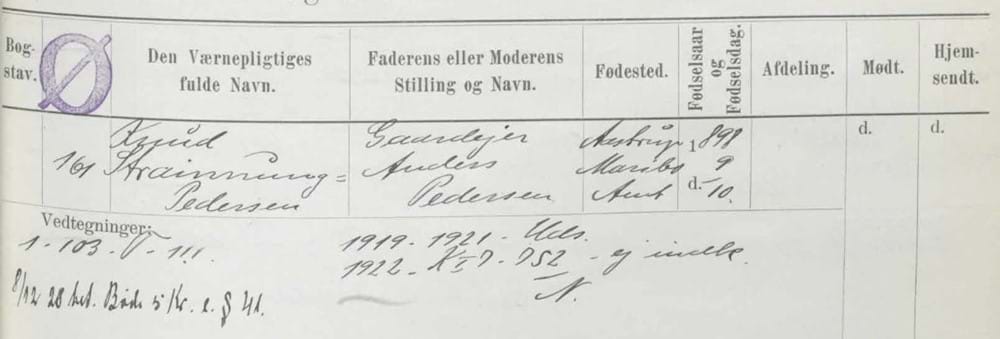 Bog-
stav.
Ø
Den Værnepligtiges
fulde Navn.
Faderens eller Moderens
Stilling og Navn.
Fødested.
Fødselsaar
og
Fødselsdag.
Afdeling.
Mødt.
Hjem-
sendt.
161
Knud
Strainnung=
Pedersen
Gaardejer
Anders
Pedersen
Aastrup
Maribo
Amt
1898
9
d. - 10.
d.
d.
Vedtegninger:
1 - 103 - - III
1919 - 1921 - Uds.
1922 - - 752 - ej indk.
N.
8/12 28 Bøde 5 Kr. e. § 41.